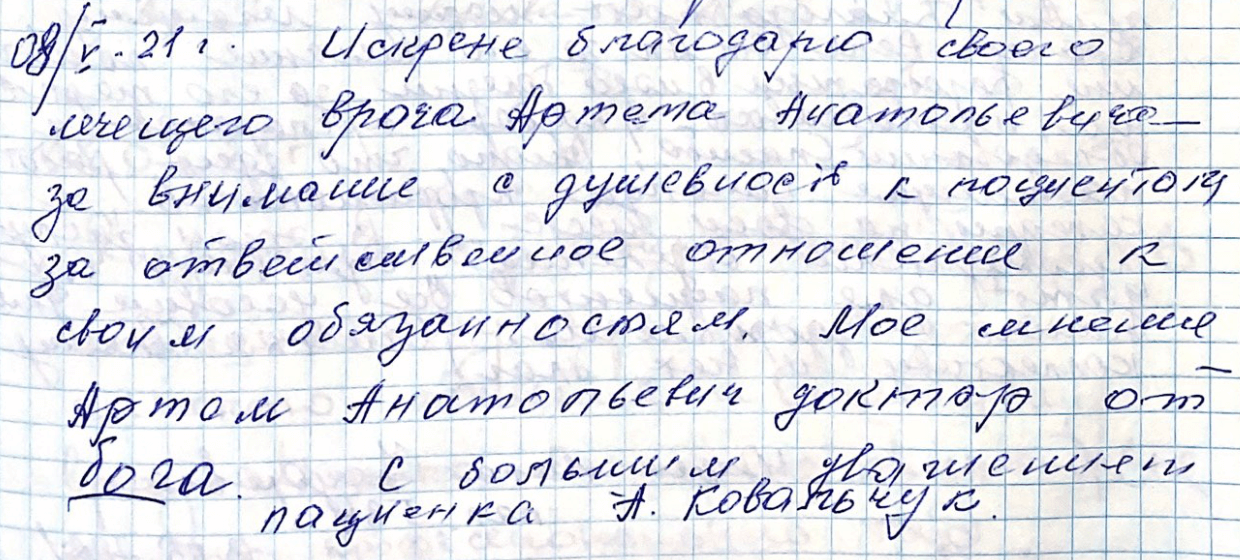 08/V-21г. Искрене благодарю своего
лечещего врача Артема Анатольевича—
за внимание с душевность к пациентам
за ответственное отношение к
своим обязанностям. Мое мнение —
Артем Анатольевич доктор от
бога. С большим уважением
пациенка А. Ковальчук.